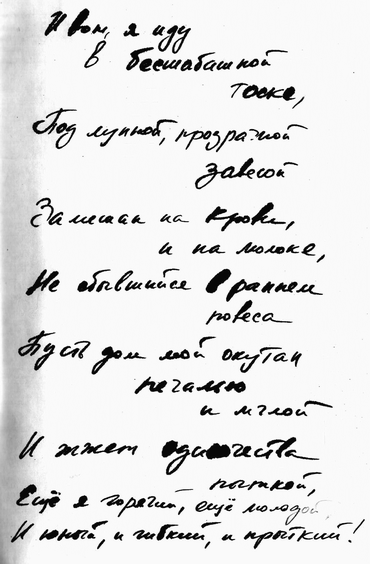 И вот, я иду
в бесшабашной
тоске,
Под лунной, прозрачной
завесой
Замешан на крови,
и на молоке,
Не сбывшийся в раннем
повеса
Пусть дом мой окутан
печалью
и мглой
И жжет одиночества
пыткой,
Ещё я горячий, ещё молодой,
И юный, и гибкий, и прыткий!